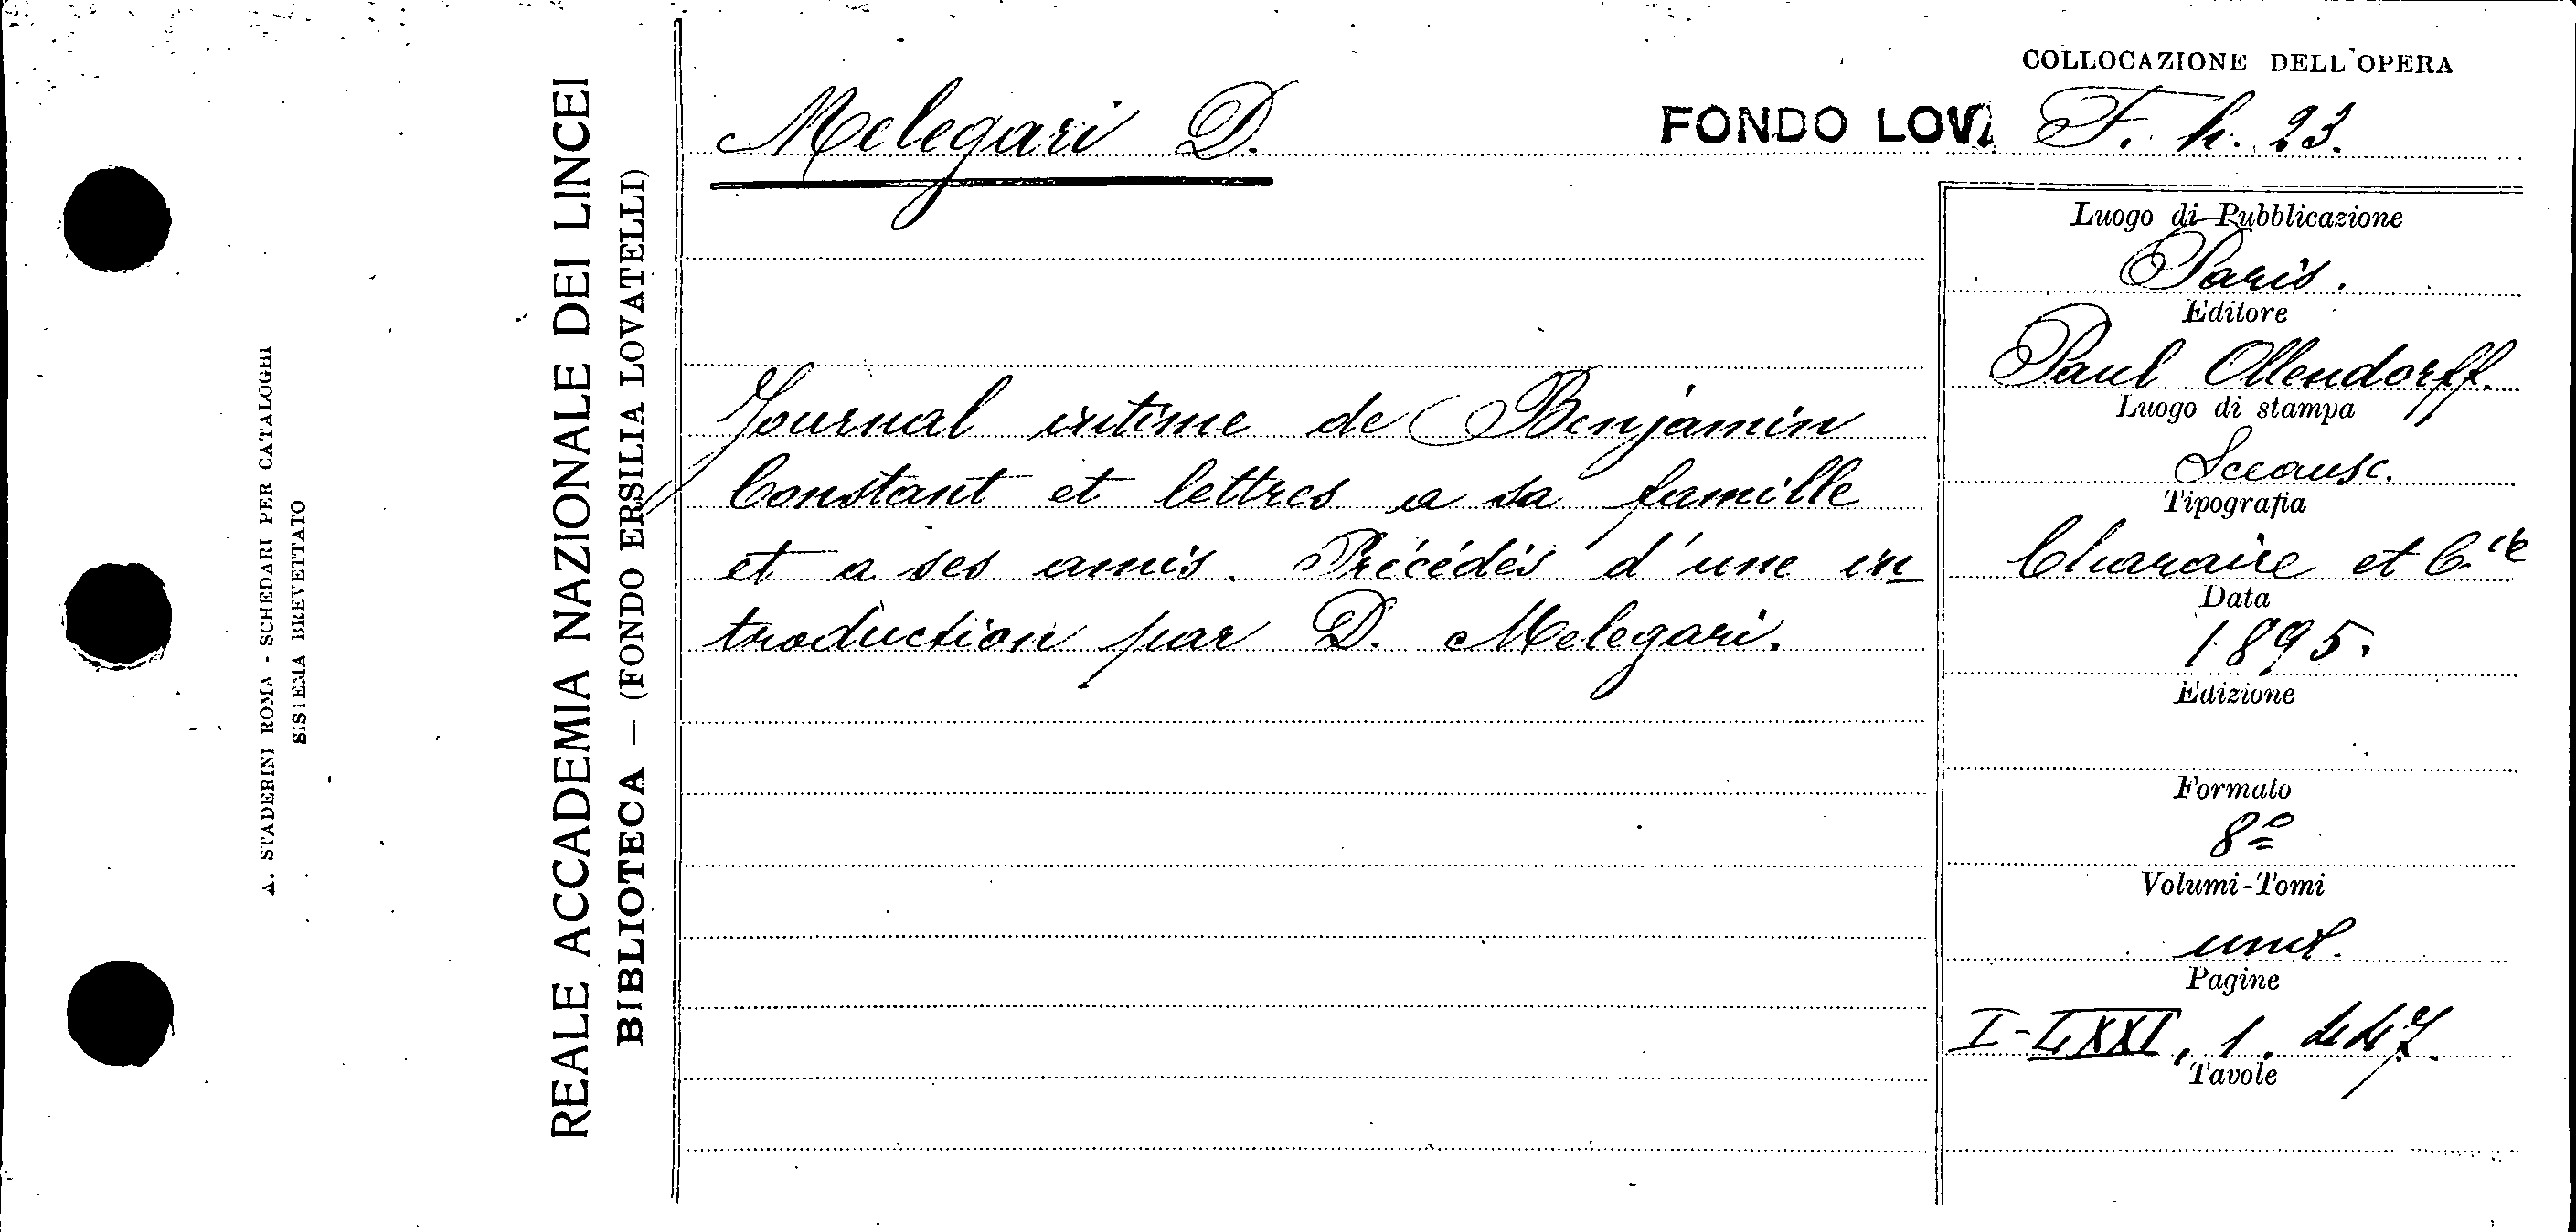 COLLOCAZIONE DELL'OPERA
Melegari D.
FONDO LOV. F. h. 23.
Journal intime de Benjamin
Constant et lettres a sa famille
et a ses amis. Précédés d'une in
troduction par D. Melegari.
Luogo di Pubblicazione
Paris.
Editore
Paul Ollendorff.
Luogo di stampa
Sceausc.
Tipografia
Charaire et C.ie
Data
1895.
Edizione
Formato
8º
Volumi-Tomi
unil.
Pagine
I-LXXI, 1. 447.
Tavole
REALE ACCADEMIA NAZIONALE DEI LINCEI
BIBLIOTECA — (FONDO ERSILIA LOVATELLI)
A. STADERINI ROMA - SCHEDARI PER CATALOGHI
SISTEMA BREVETTATO